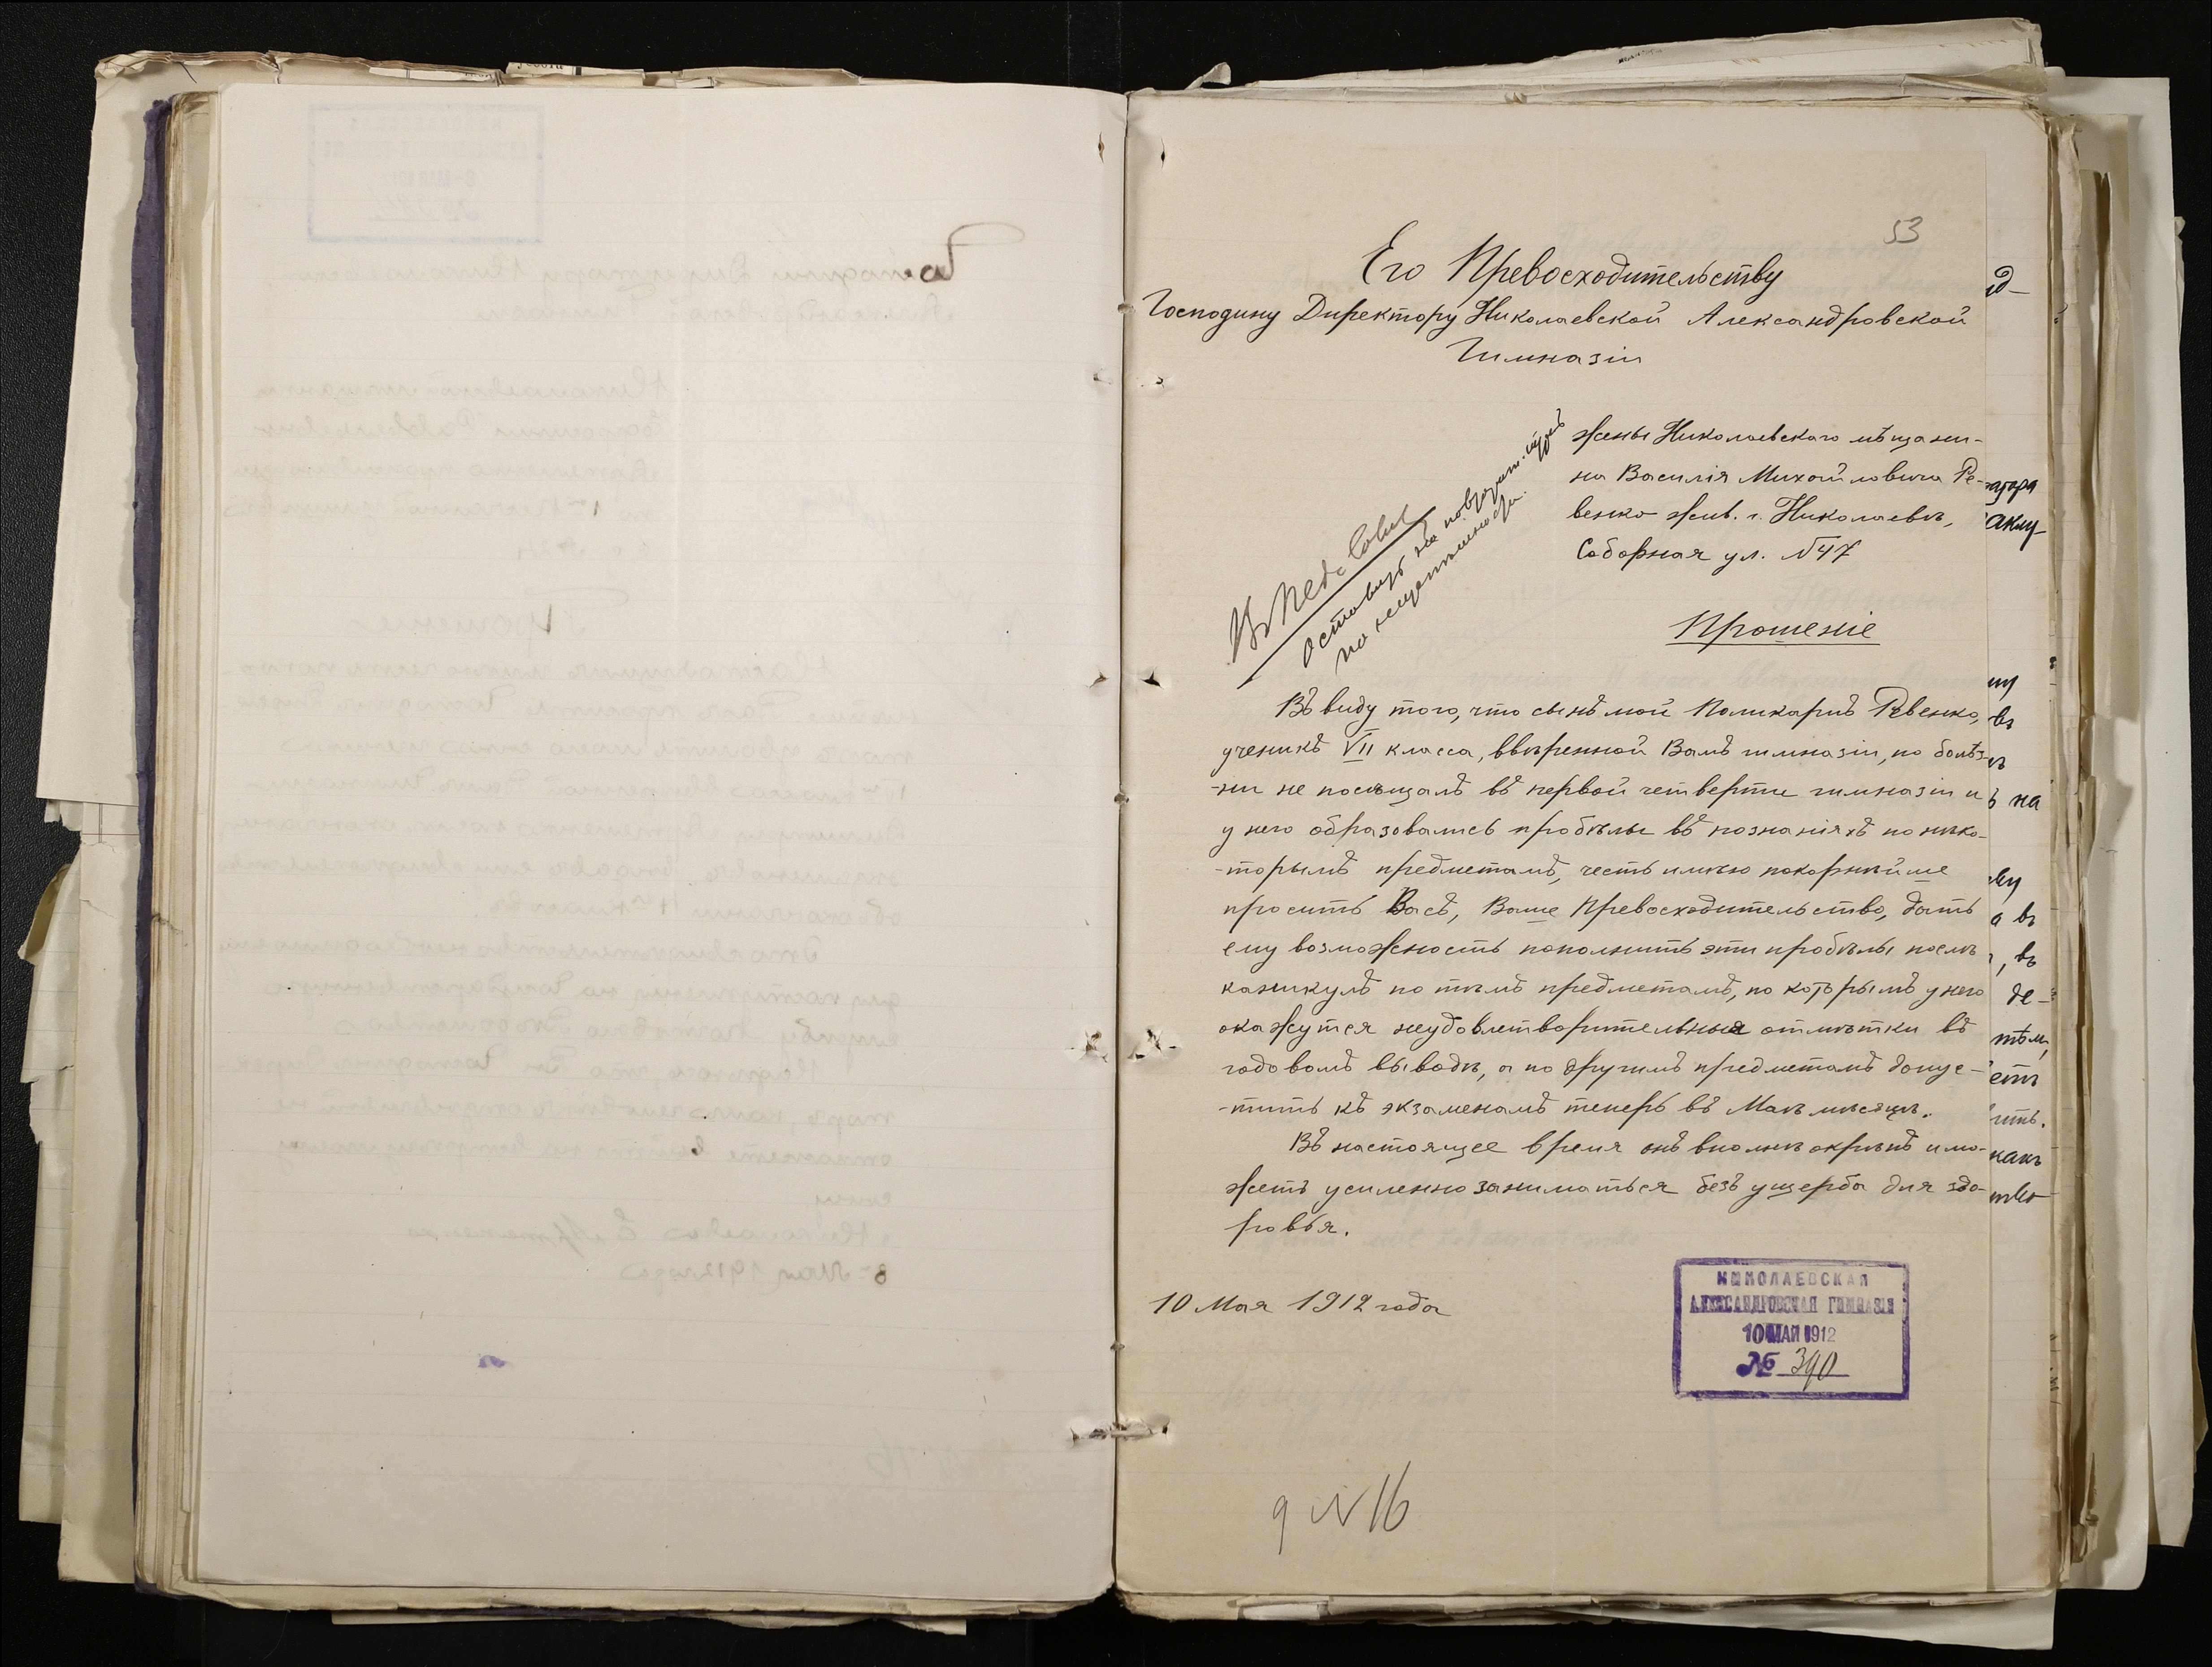 53
Его Превосходительству
Господину Директору Николаевской Александровской
Гимназіи
жены Николаевскаго мѣщани-
на Василія Михайловича Ре-
венко жив. г. Николаевъ,
Соборная ул. №47
Въ Педа. Совѣт
Оставить
по неуспѣшности.
Прошеніе
Въ виду того, что сынъ мой Поликарпъ Ревенко,
ученикъ VII класса, ввѣренной Вамъ гимназіи, по болѣз-
-ни не посѣщалъ въ первой четверти гимназіи и
у него образовались пробѣлы въ познаніяхъ по нѣко-
-торымъ предметамъ, честь имѣю покорнѣйше
просить Васъ, Ваше Превосходительство, дать
ему возможность пополнить эти пробѣлы послѣ
каникулъ по тѣмъ предметамъ, по которымъ у него
окажутся неудовлетворительныя отмѣтки въ
годовомъ выводѣ, а по другимъ предметамъ допус-
-тить къ экзаменамъ теперь въ Маѣ мѣсяцѣ.
Въ настоящее время онъ вполнѣ окрѣпъ и мо-
жетъ усиленно заниматься безъ ущерба для здо-
ровья.
10 Мая 1912 года
НИКОЛАЕВСКАЯ
АЛЕКСАНДРОВСКАЯ ГИМНАЗІЯ
10 МАЙ 1912
№ 390
9 № 16